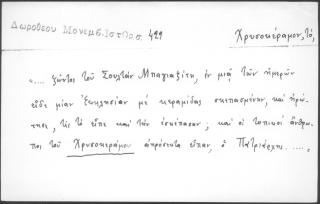 Δωροθέου Μονεμβ. Ἱστορ. σ. 429
Χρυσοκέραμον, τό,
«.... ζῶντος τοῦ Σουλτὰν Μπαγιαζίτη, ἐν μιᾷ τῶν ἡμερῶν
εἶδε μίαν ἐκκλησίαν μὲ κεραμίδας σκεπασμένην, καὶ ἠρώ-
τησε, τίς τὸ εἶπε καὶ τὴν ἐσκέπασαν; καὶ οἱ τοπικοὶ ἄνθρω-
ποι τοῦ Χρυσοκεράμου ἀπρόσεκτα εἶπαν, ὁ Πατριάρχης.....»